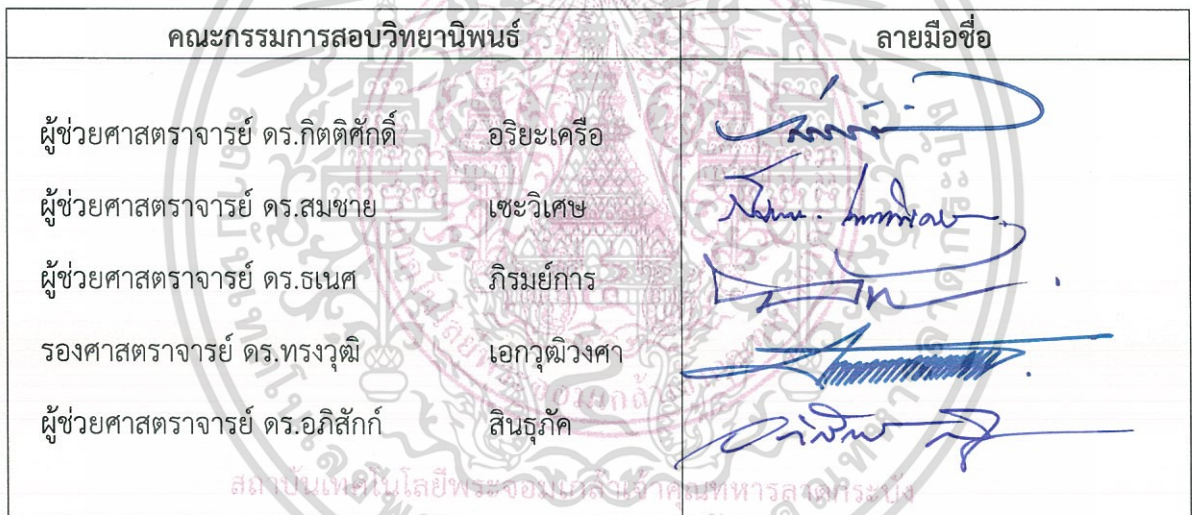 คณะกรรมการสอบวิทยานิพนธ์ ลายมือชื่อ
ผู้ช่วยศาสตราจารย์ ดร.กิตติศักดิ์ อริยะเครือ
ผู้ช่วยศาสตราจารย์ ดร.สมชาย เซะวิเศษ
ผู้ช่วยศาสตราจารย์ ดร.ธเนศ ภิรมย์การ
รองศาสตราจารย์ ดร.ทรงวุฒิ เอกวุฒิวงศา
ผู้ช่วยศาสตราจารย์ ดร.อภิสักก์ สินธุภัค
สถาบันเทคโนโลยีพระจอมเกล้าเจ้าคุณทหารลาดกระบัง